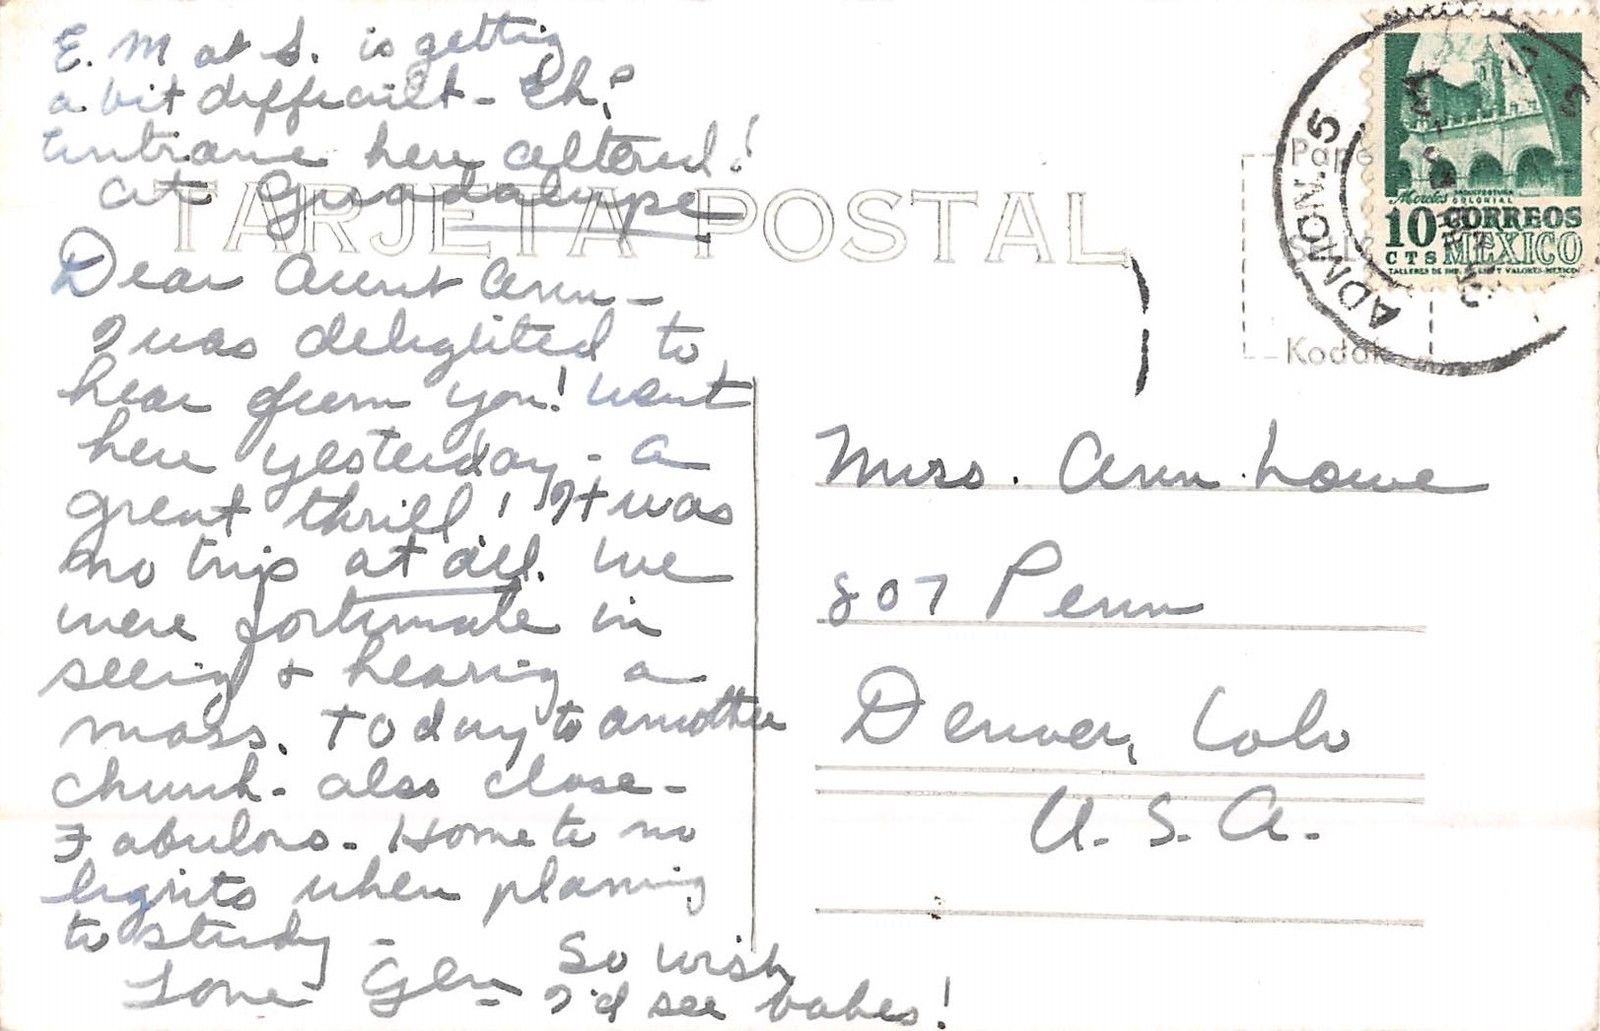 E. M at S. is getting
a bit difficult - Eh?
Entrance here altered!
at Guadalupe
TARJETA POSTAL
Dear Aunt Ann -
I was delighted to
hear from you! Went
here yesterday - a
great thrill! It was
no trip at all. We
were fortunate in
seeing & hearing a
mass. Today to another
church - also close -
Fabulous - Home to no
lights when planning
to study -
Love Glen -
So wish
I'd see babes!
ADMON. 5
Morelos ARQUITECTURA COLONIAL
10 CTS CORREOS MEXICO
TALLERES DE IMP. DE EST. Y VALORES-MEXICO
Kodak
Miss. Ann Lowe
807 Penn
Denver, Colo
U. S. A.